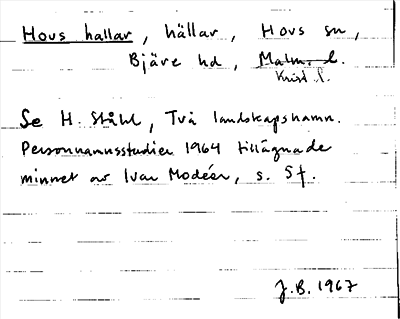 Hovs hallar, hällar, Hovs sn,
Bjäre hd, Malm. l.
Krist l.
Se H. Ståhl, Två landskapsnamn.
Personnamnsstudier 1964 tillägnade
minnet av Ivar Modéer, s. 5f.
J.B. 1967